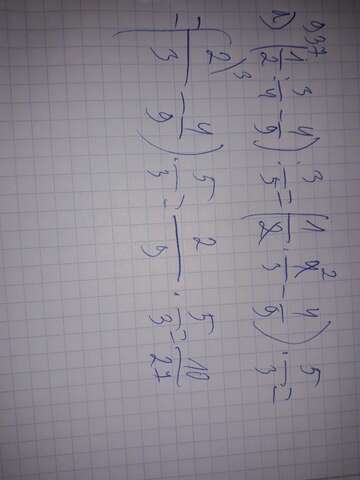 937
1) (1/2 : 3/4 - 4/9) : 3/5 = (1/2 · 4²/3 - 4/9) · 5/3 =
= (2/3 ³⁾ - 4/9) · 5/3 = 2/9 · 5/3 = 10/27